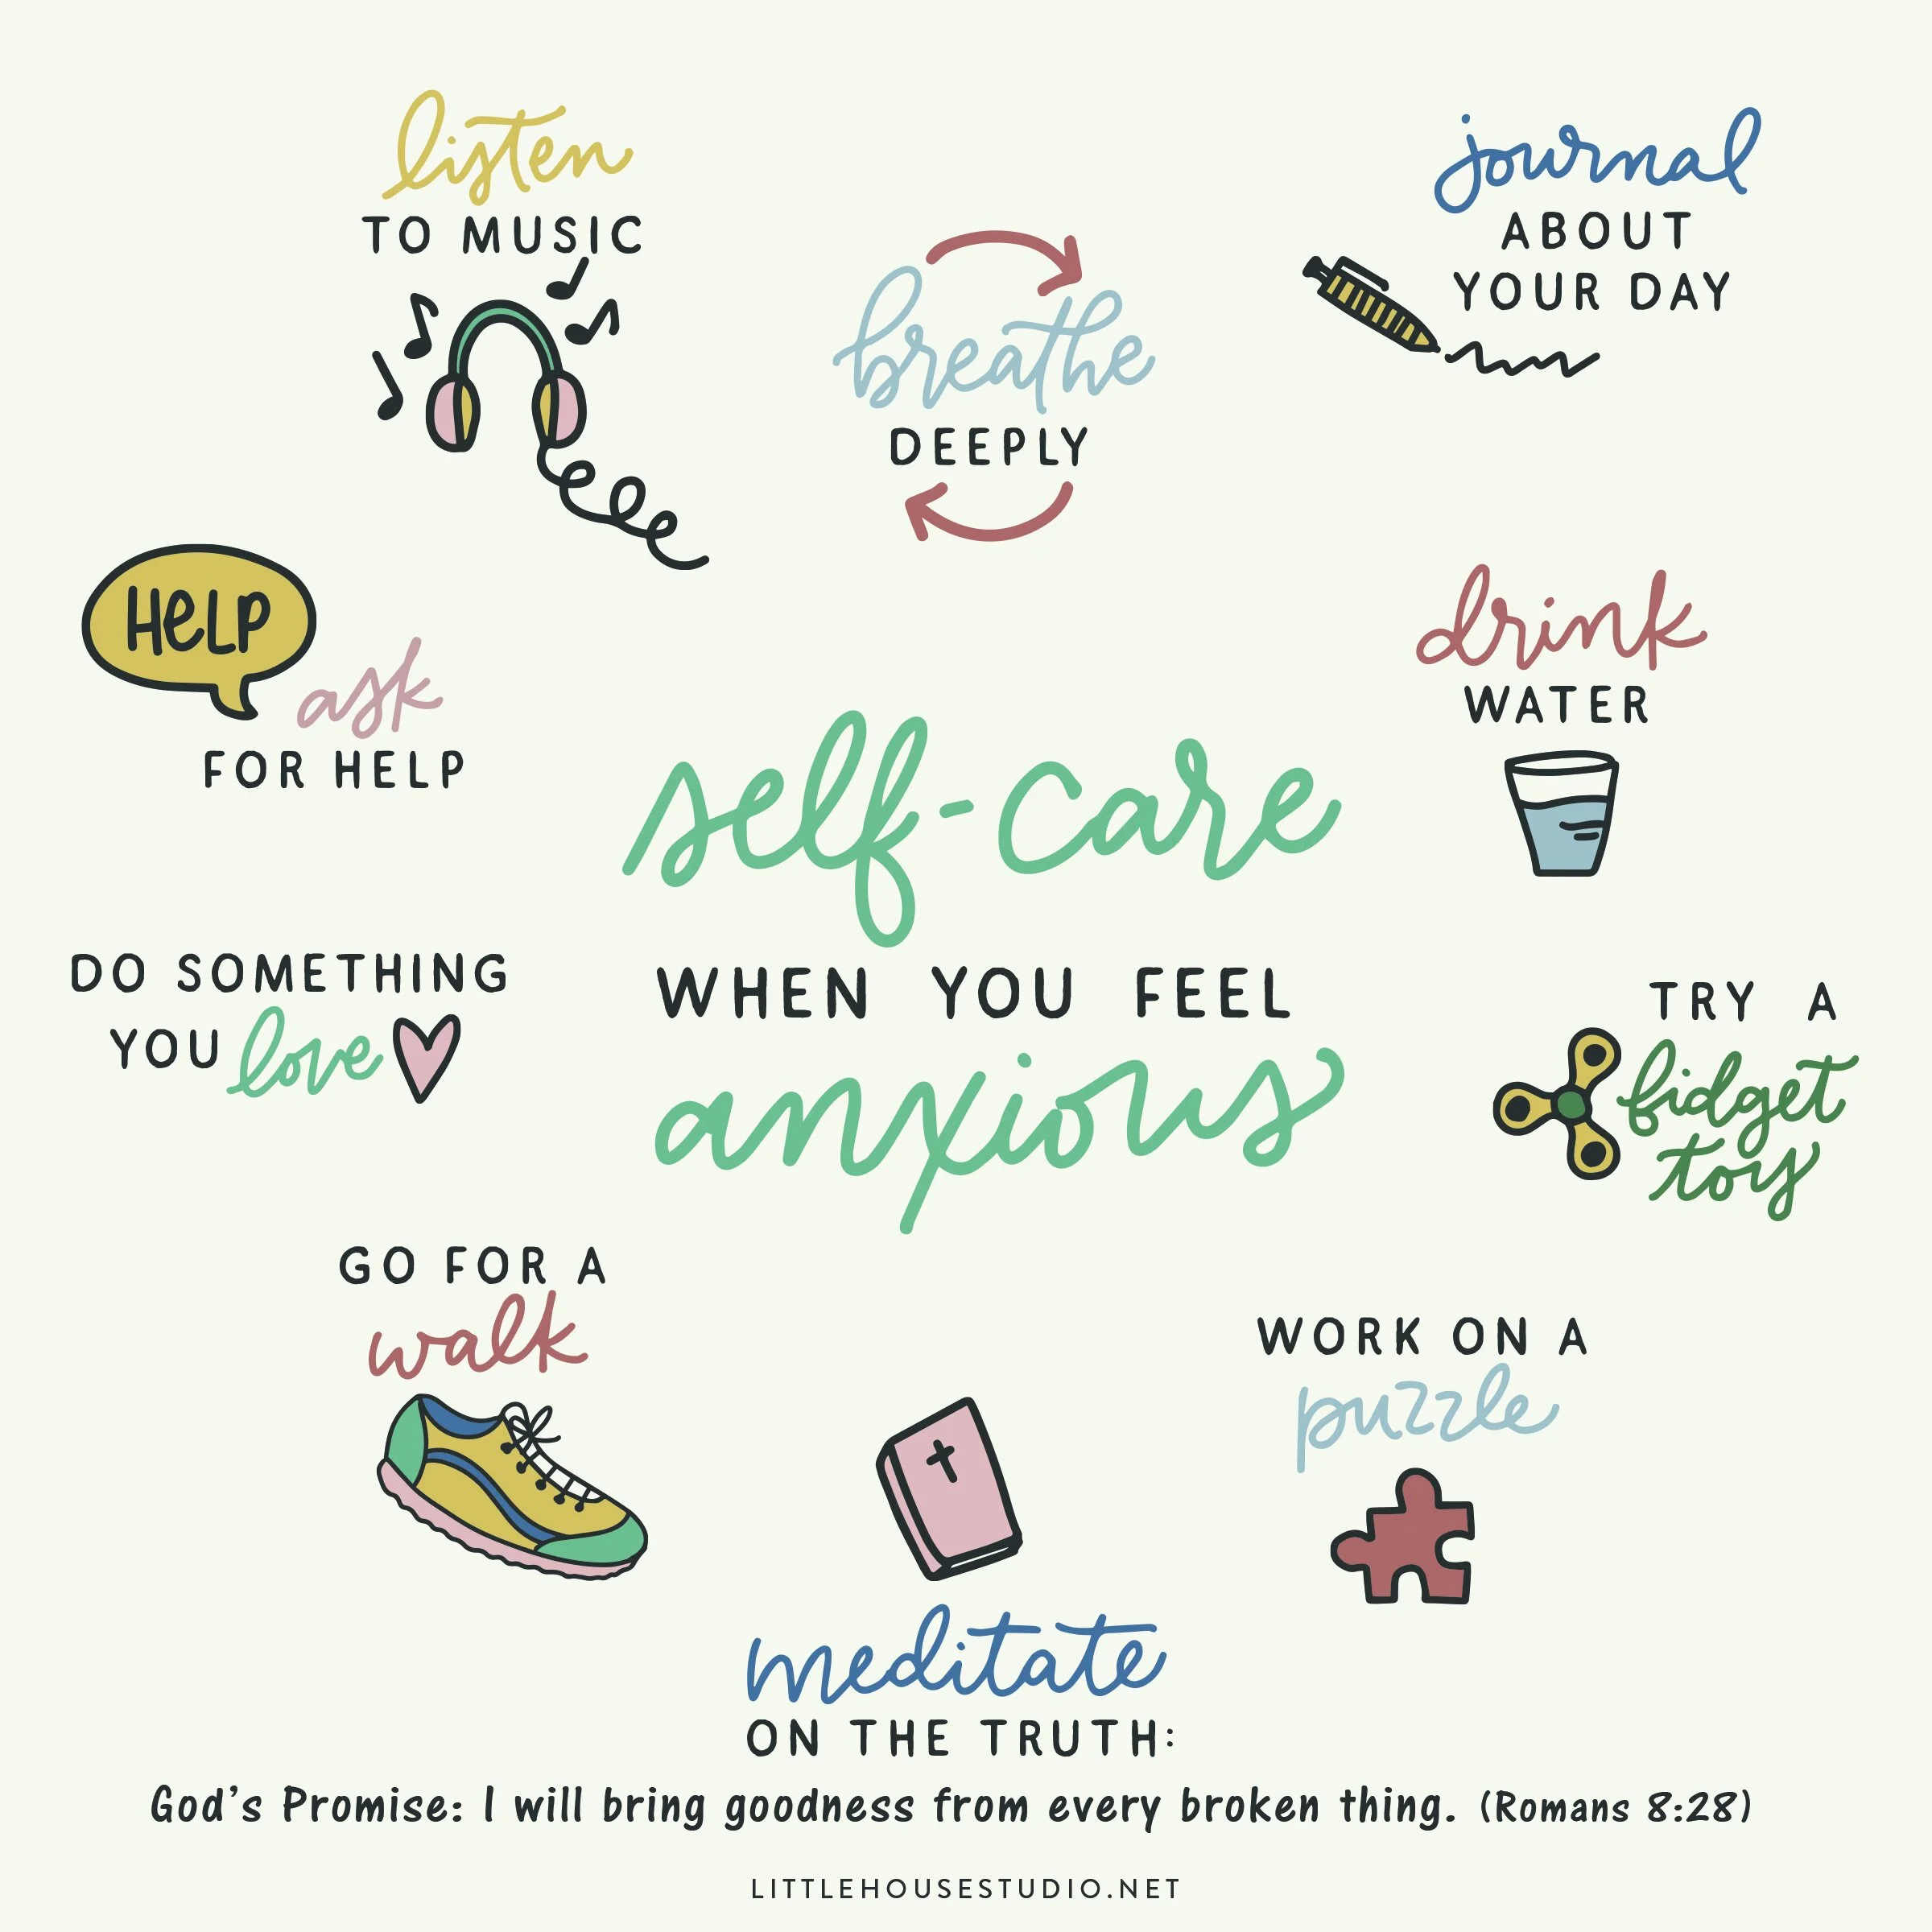 listen
TO MUSIC
breathe
DEEPLY
journal
ABOUT
YOUR DAY
HELP
ask
FOR HELP
drink
WATER
self-care
WHEN YOU FEEL
anxious
DO SOMETHING
YOU love
TRY A
fidget
toy
GO FOR A
walk
WORK ON A
puzzle
meditate
ON THE TRUTH:
God's Promise: I will bring goodness from every broken thing. (Romans 8:28)
LITTLEHOUSESTUDIO.NET